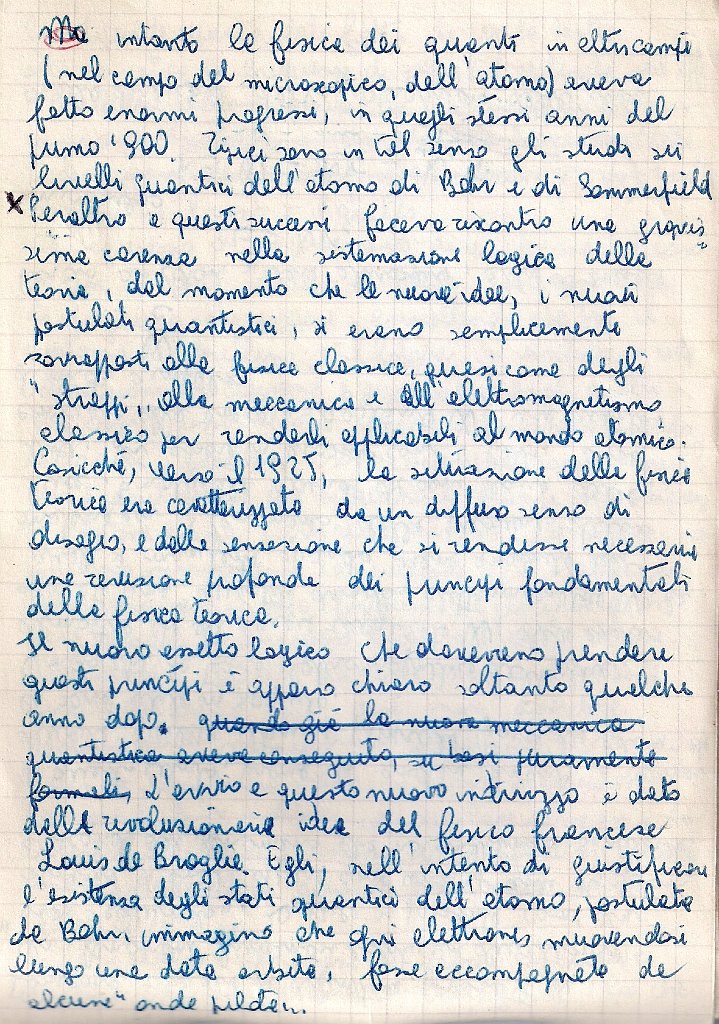 Ma intanto la fisica dei quanti in altri campi
(nel campo del microscopico, dell'atomo) aveva
fatto enormi progressi, in quegli stessi anni del
primo '900. Tipici sono in tal senso gli studi sui
livelli quantici dell'atomo di Bohr e di Sommerfield
Peraltro a questi successi faceva riscontro una gravis
sima carenza nella sistemazione logica della
teoria, dal momento che le nuove idee, i nuovi
postulati quantistici, si erano semplicemente
sovrapposti alla fisica classica, quasi come degli
"strappi", alla meccanica e all'elettromagnetismo
classico per renderli applicabili al mondo atomico.
Cosicché, verso il 1925, la situazione della fisica
teorica era caratterizzata da un diffuso senso di
disagio, e dalla sensazione che si rendesse necessaria
una revisione profonda dei principi fondamentali
della fisica teorica.
Il nuovo assetto logico che dovevano prendere
questi principi è apparso chiaro soltanto qualche
anno dopo. quando già la nuova meccanica
quantistica aveva conseguito, su basi puramente
formali, L'avvio a questo nuovo indirizzo è dato
dalla rivoluzionaria idea del fisico francese
Louis de Broglie. Egli, nell'intento di giustificare
l'esistenza degli stati quantici dell'atomo, postulata
da Bohr, immaginò che ogni elettrone, muovendosi
lungo una data orbita, fosse accompagnato da
alcune "onde pilota".